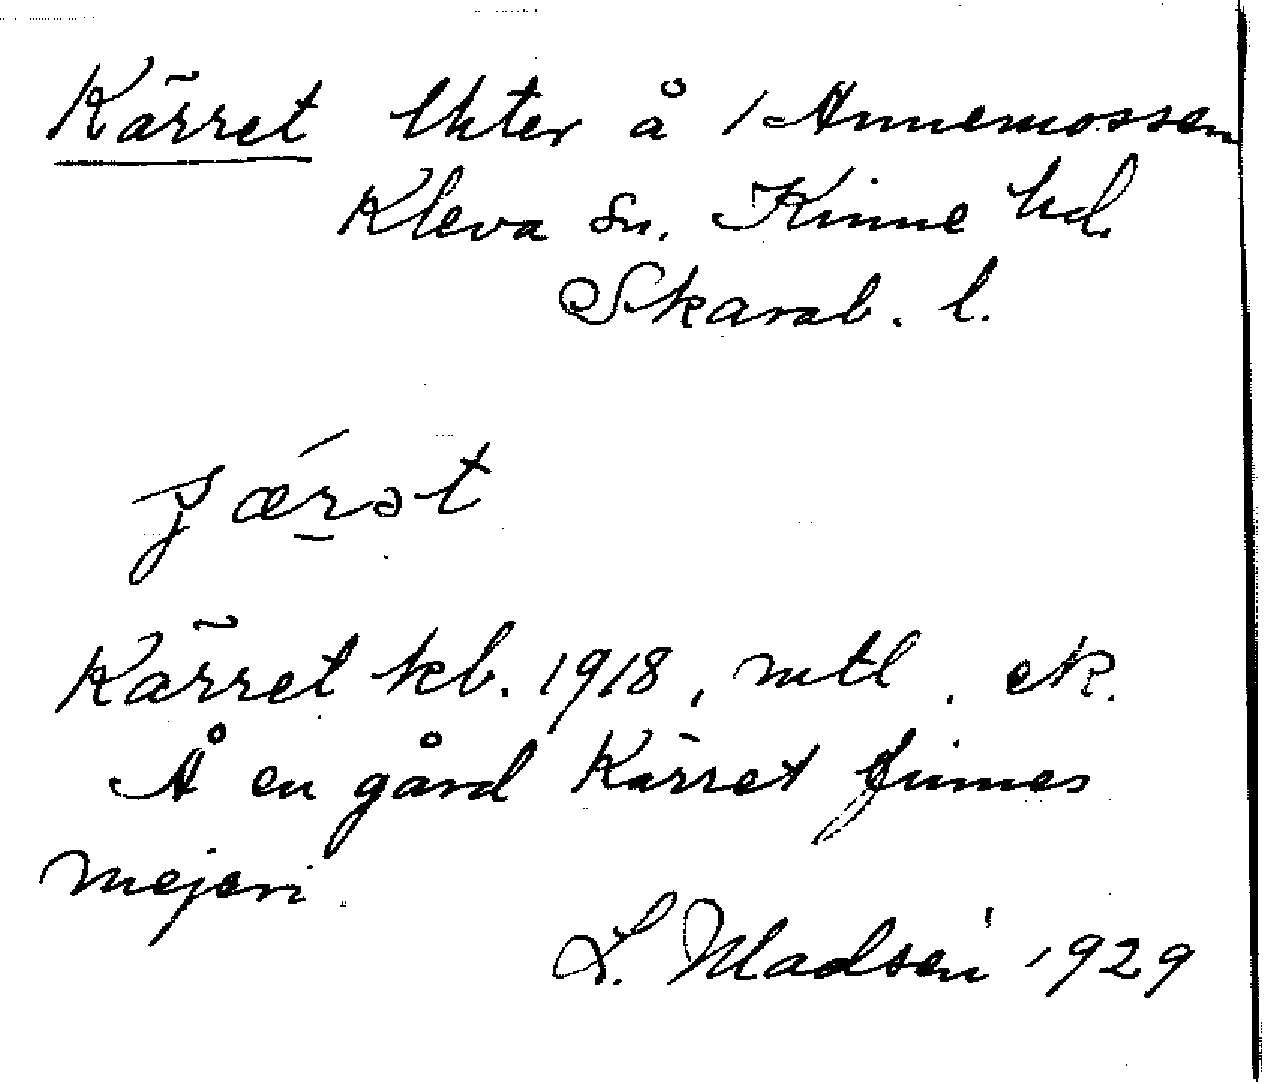 Kärret lhter å 1 Annemossen
Kleva sn. Kinne hd.
Skarab. l.
ʝǽrət
Kärret kb. 1918, mtl. ek.
Å en gård Kärret finnes
mejeri.
L. Madsén 1929